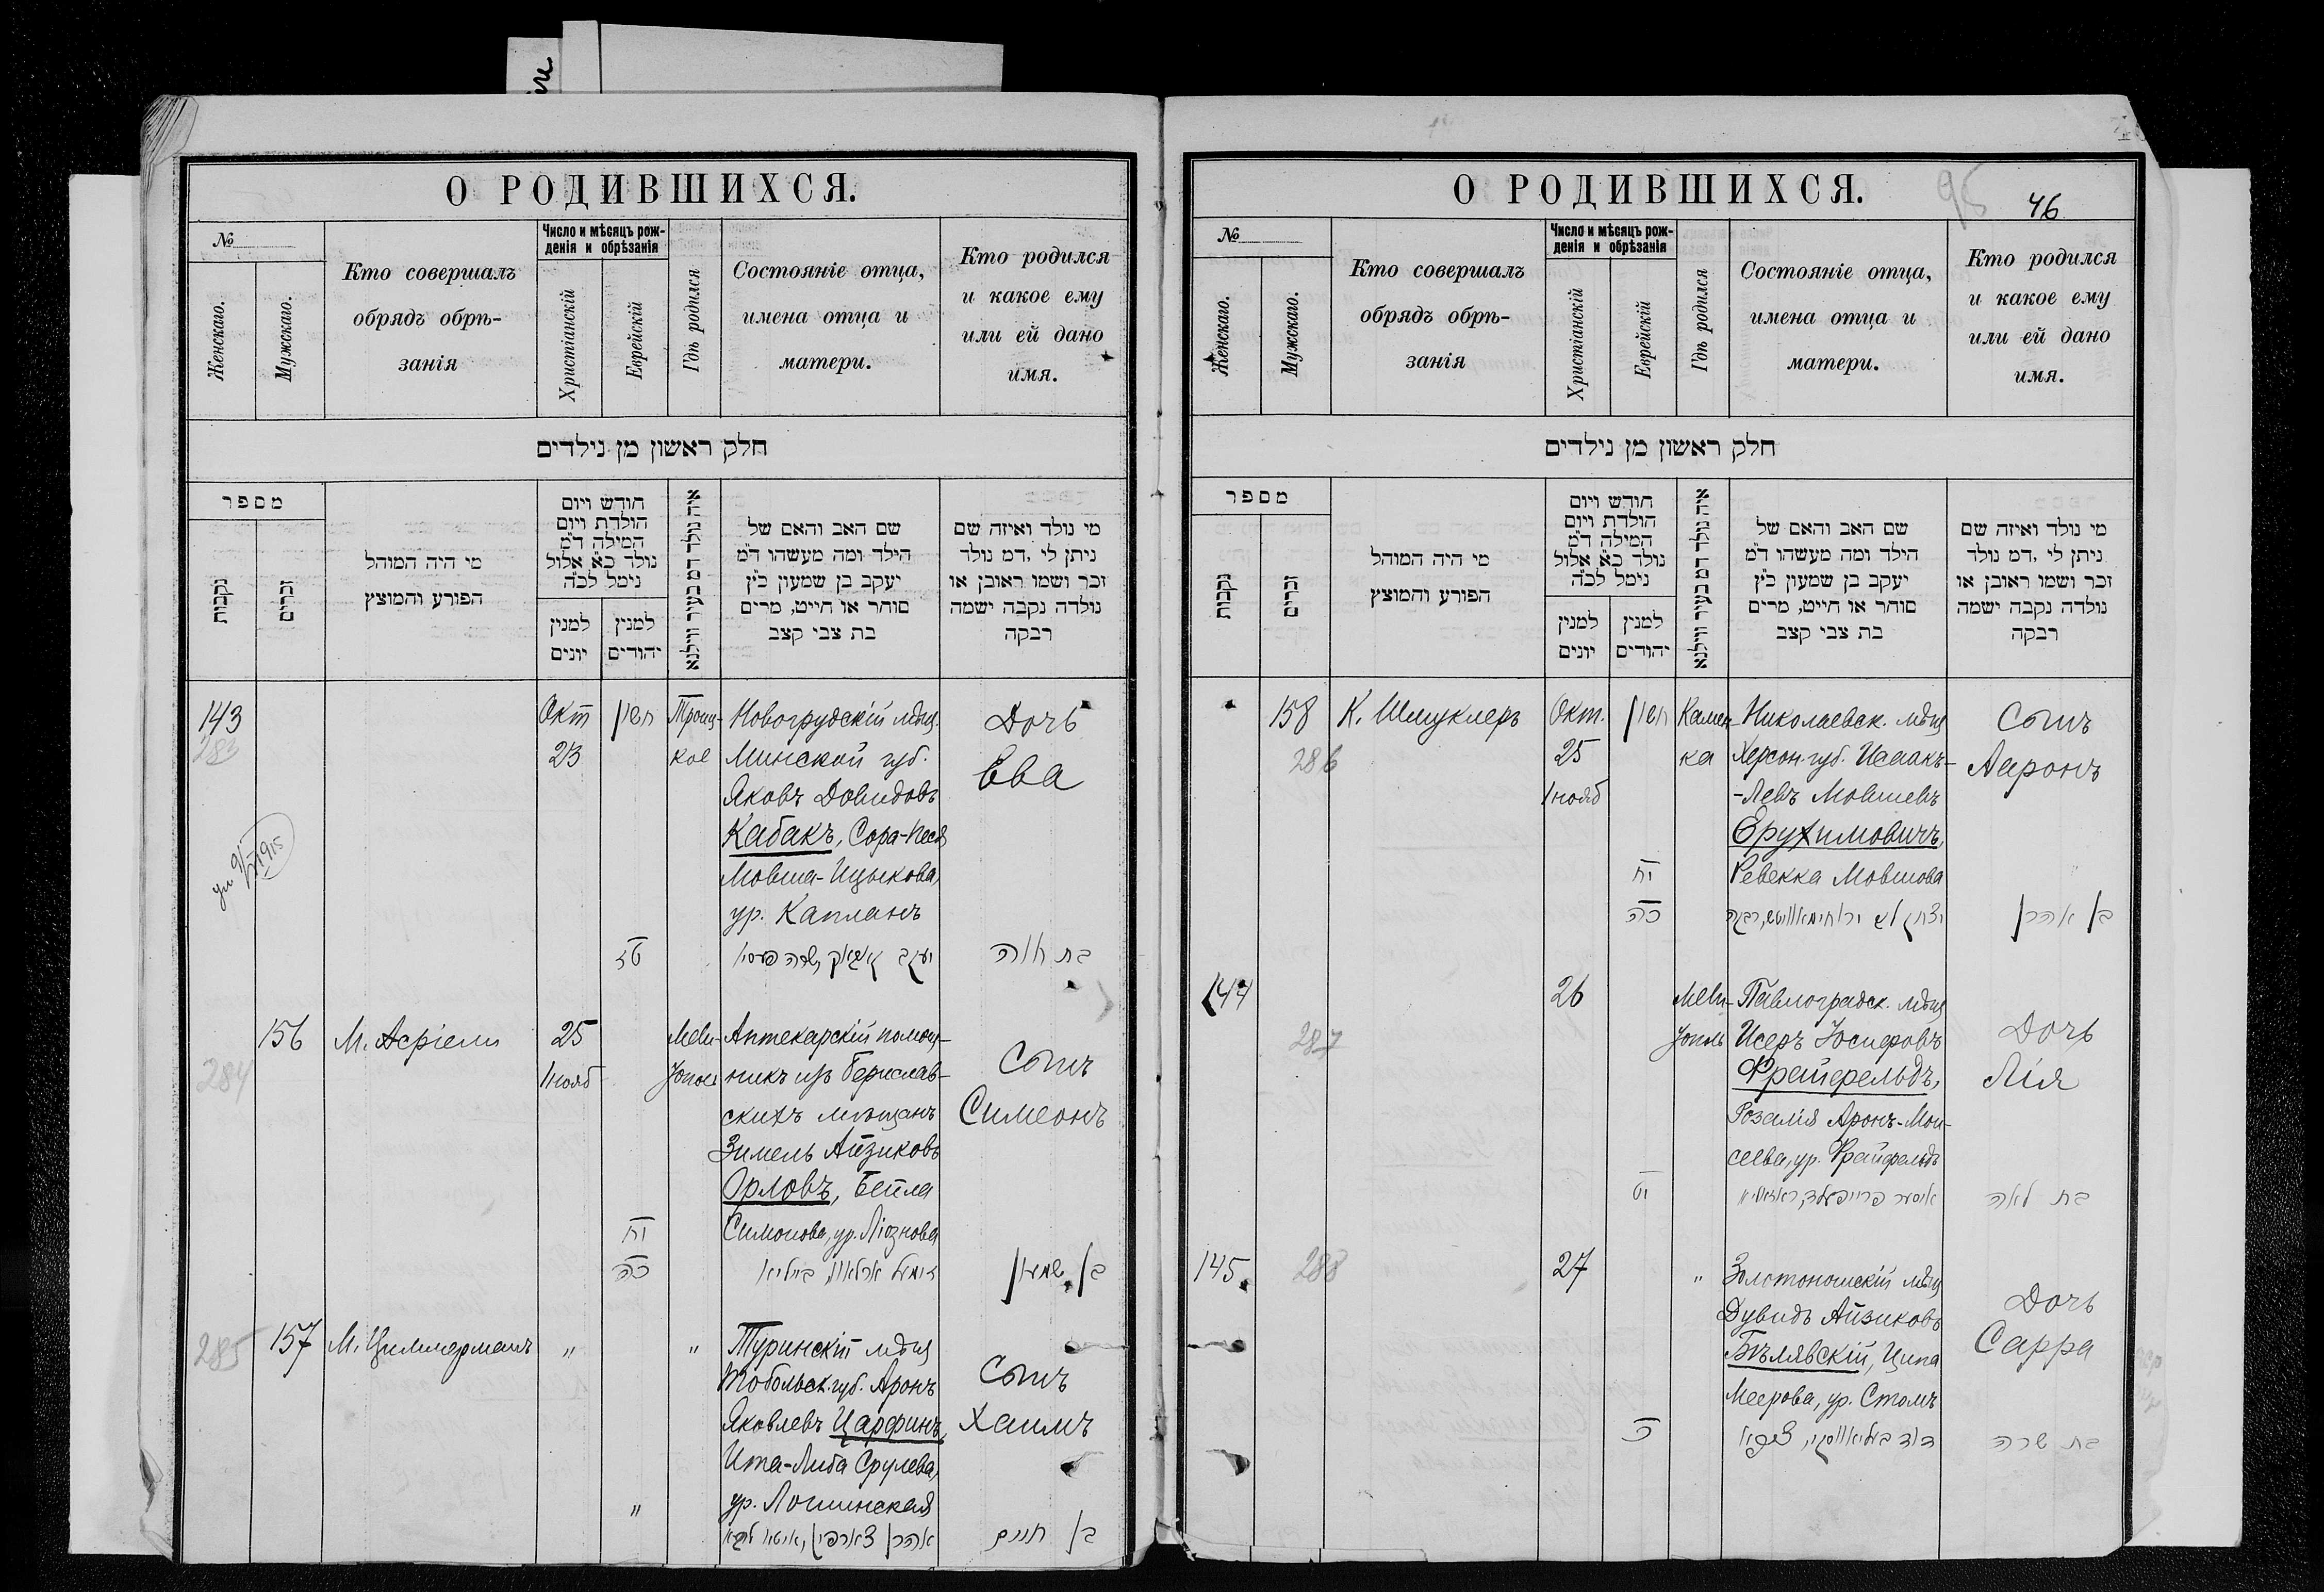 О РОДИВШИХСЯ.
№
Женскаго.
Мужскаго.
Кто совершалъ
обрядъ обрѣ-
занія
Число и мѣсяцъ рож-
денія и обрѣзанія
Христіанскій
Еврейскій
Гдѣ родился
Состояніе отца,
имена отца и
матери.
Кто родился
и какое ему
или ей дано
имя.
חלק ראשון מן נילדים
מספר
נקבות
זכרים
מי היה המוהל
הפורע והמוצץ
חודש ויום
הולדת ויום
המילה ד״מ
נולד כ״א אלול
נימל לכ״ה
למנין
יונים
למנין
יהודים
איה נולד דמ בעיר ווילנא
שם האב והאם של
הילד ומה מעשהו ד״מ
יעקב בן שמעון כ״ץ
סוחר או חייט, מרים
בת צבי קצב
מי נולד ואיזה שם
ניתן לי ,דמ נולד
זכר ושמו ראובן או
נולדה נקבה ישמה
רבקה
143
283
Окт
23
חשון
Троиц-
кое
Новогрудскій мѣщ.
Минской губ.
Яковъ Довидовъ
Кабакъ, Сора-Песя
Мовша-Ицыкова,
ур. Капланъ
Дочь
Ева
טז
יעקב קאבאק, שרה פעסיא
בת חוה
156
284
М. Асріели
25
1 нояб
Мели-
тополь
Аптекарскій помощ-
никъ изъ Берислав-
скихъ мѣщанъ
Зимель Айзиковъ
Орловъ, Бейла
Симонова, ур.Ліознова
Сынъ
Симеонъ
יח
כה
זימעל ארלאוו, ביילא
בן שמעון
285
157
М. Циммерманъ
"
"
Туринскій мѣщ
Тобольск. губ. Аронъ
Яковлевъ Царфинъ,
Ита-Либа Срулева,
ур. Лошинская
Сынъ
Хаимъ
"
אהרן צארפין, איטא ליבא
בן חיים
О РОДИВШИХСЯ.
95
46
№
Женскаго.
Мужскаго.
Кто совершалъ
обрядъ обрѣ-
занія
Число и мѣсяцъ рож-
денія и обрѣзанія
Христіанскій
Еврейскій
Гдѣ родился
Состояніе отца,
имена отца и
матери.
Кто родился
и какое ему
или ей дано
имя.
חלק ראשון מן נילדים
מספר
נקבות
זכרים
מי היה המוהל
הפורע והמוצץ
חודש ויום
הולדת ויום
המילה ד״מ
נולד כ״א אלול
נימל לכ״ה
למנין
יונים
למנין
יהודים
איה נולד דמ בעיר ווילנא
שם האב והאם של
הילד ומה מעשהו ד״מ
יעקב בן שמעון כ״ץ
סוחר או חייט, מרים
בת צבי קצב
מי נולד ואיזה שם
ניתן לי ,דמ נולד
זכר ושמו ראובן או
נולדה נקבה ישמה
רבקה
158
286
К. Шмуклеръ
Окт.
25
1 нояб
חשון
Камен-
ка
Николаевск. мѣщ
Херсон. губ. Исаакъ-
-Левъ Мовшевъ
Ерухимовичъ,
Ревекка Мовшова
Сынъ
Ааронъ
יח
כה
יצחק לב ירוחימאוויטש, רבקה
בן אהרן
144
287
26
Мели-
тополь
Павлоградск. мѣщ
Исеръ Іосифовъ
Фрайфельдъ,
Розалія Аронъ-Мои-
сеева, ур. Фрайфельдъ
Дочь
Лія
יט
איסער פרייפעלד, ראזאליא
בת לאה
145
288
27
"
Золотоношскій мѣщ
Дувидъ Айзиковъ
Бѣлявскій, Ципа
Меерова, ур. Столъ
Дочь
Сарра
כ
דוד בעליאווסקי, ציפא
בת שרה